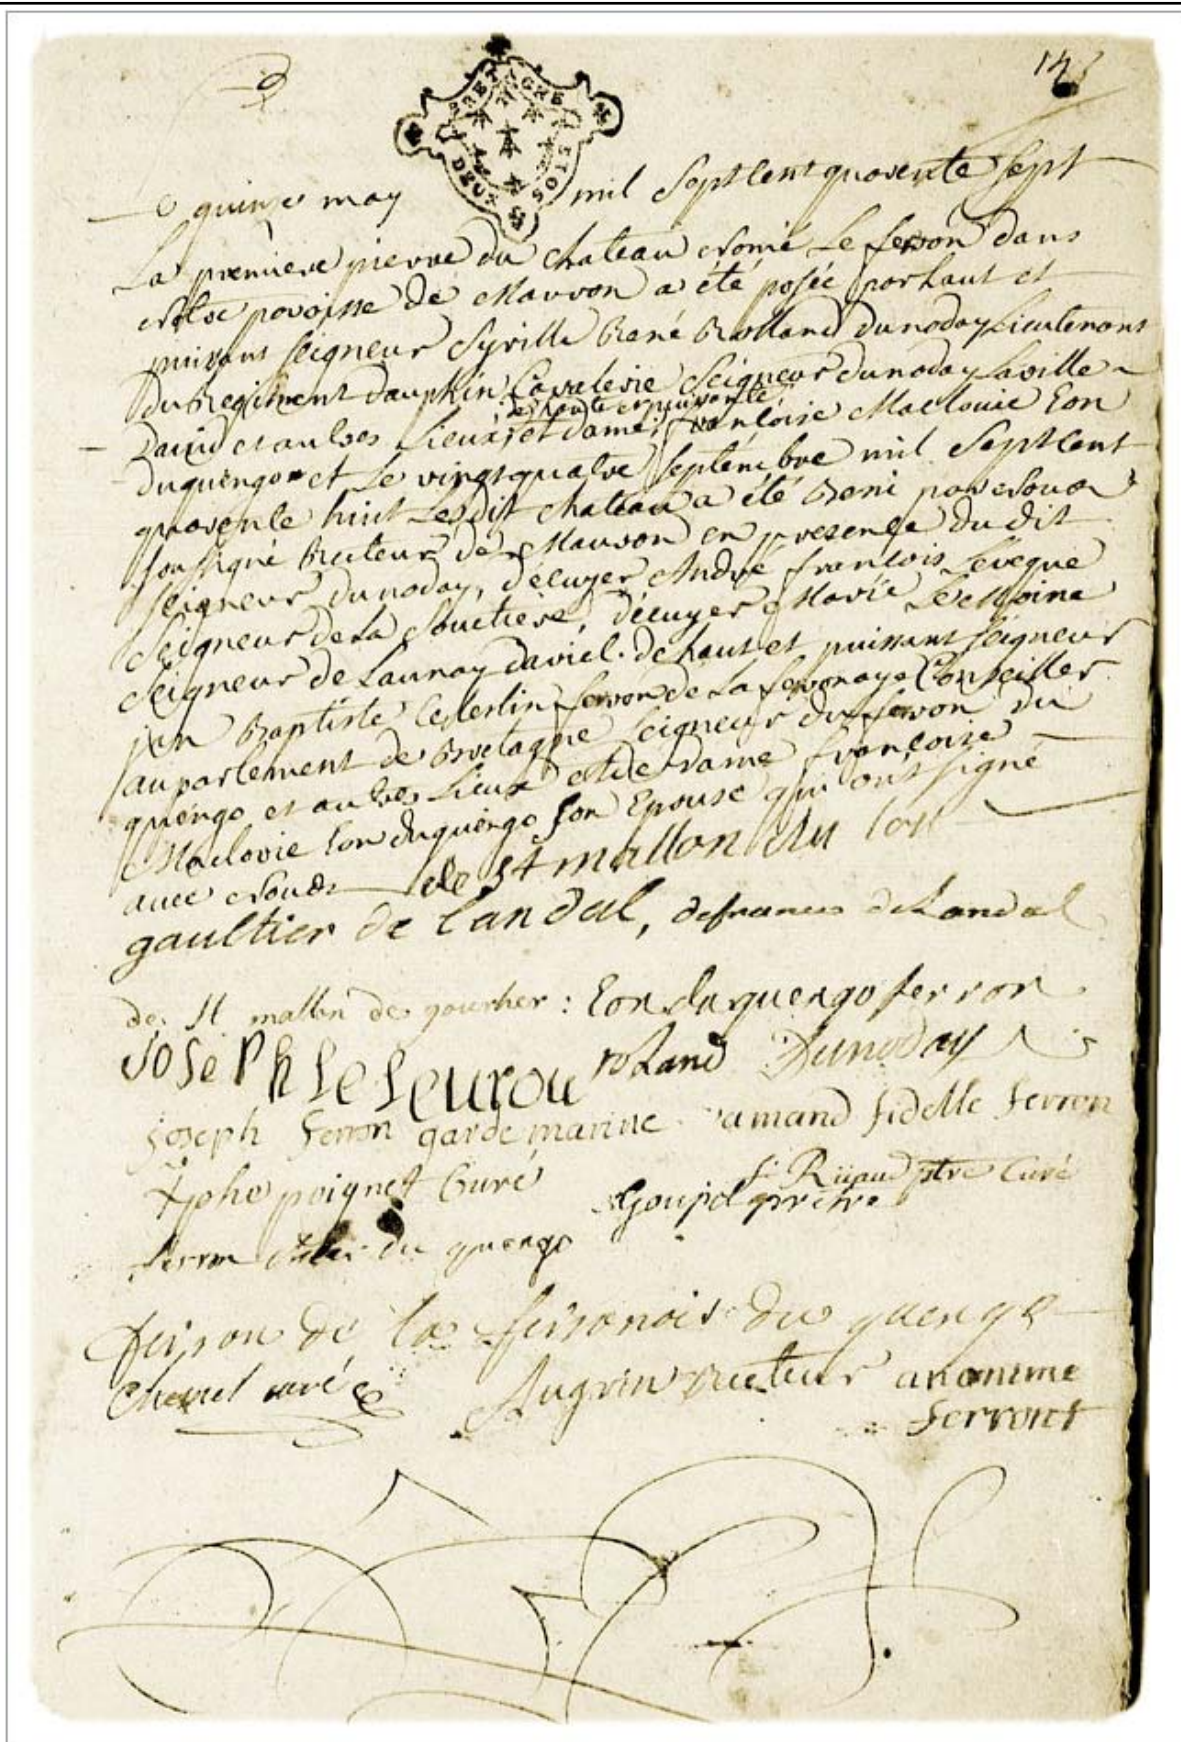 143
BRETAGNE
DEUX SOLS
Le quinze may mil Sept Cent quarente Sept
La premiere pierre du chateau nomé Le ferron dans
notre paroisse de Mauron a été posée par haut et
puissant seigneur Cyrille René Rolland du noday Lieutenant
du Regiment dauphin Cavalerie Seigneur du noday Laville
David et autres Lieux, et dame françoise Maclouie Eon
de haute et puissante
du quengo et Le vingt quatre septembre mil Sept Cent
quarente huit Le dit chateau a été Beni par Nous
soussigné Recteur de Mauron en presence du dit
seigneur du noday, d'écuyer André françois Leveque
Seigneur de La Souctiere, d'écuyer Marie Le Moine
Seigneur de Launay daviel. de haut et puissant seigneur
jan Baptiste Celestin ferron de La ferronaye Conseiller
au parlement de Bretagne Seigneur du ferron du
quengo et autres Lieux et de dame françoise
Maclovie Eon du quengo son Epouse qui ont signé
avec Nous de St mallon du
gaultier de Landal, defrance de Landal
de St mallon de gourher : Eon du quengo ferron
Joseph le Leurou roland Dunoday
joseph ferron garde marine amand fidelle ferron
Xphe poignet Curé ptre Curé
Goupil prêtre
ferron du quengo
ferron de la ferronais du quengo
Chesnel curé recteur anonime
ferront